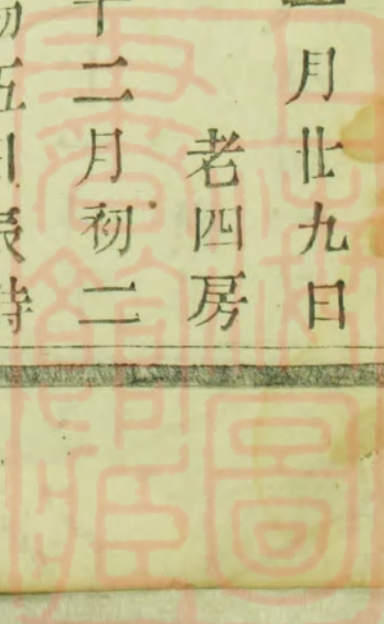 月廿九日
老四房
十二月初二
初五日辰時